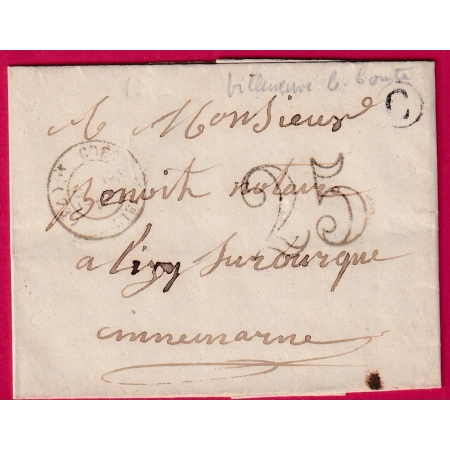 Villeneuve le Comte
C
M Monsieur
Benoit notaire
25
a lizy Surourque